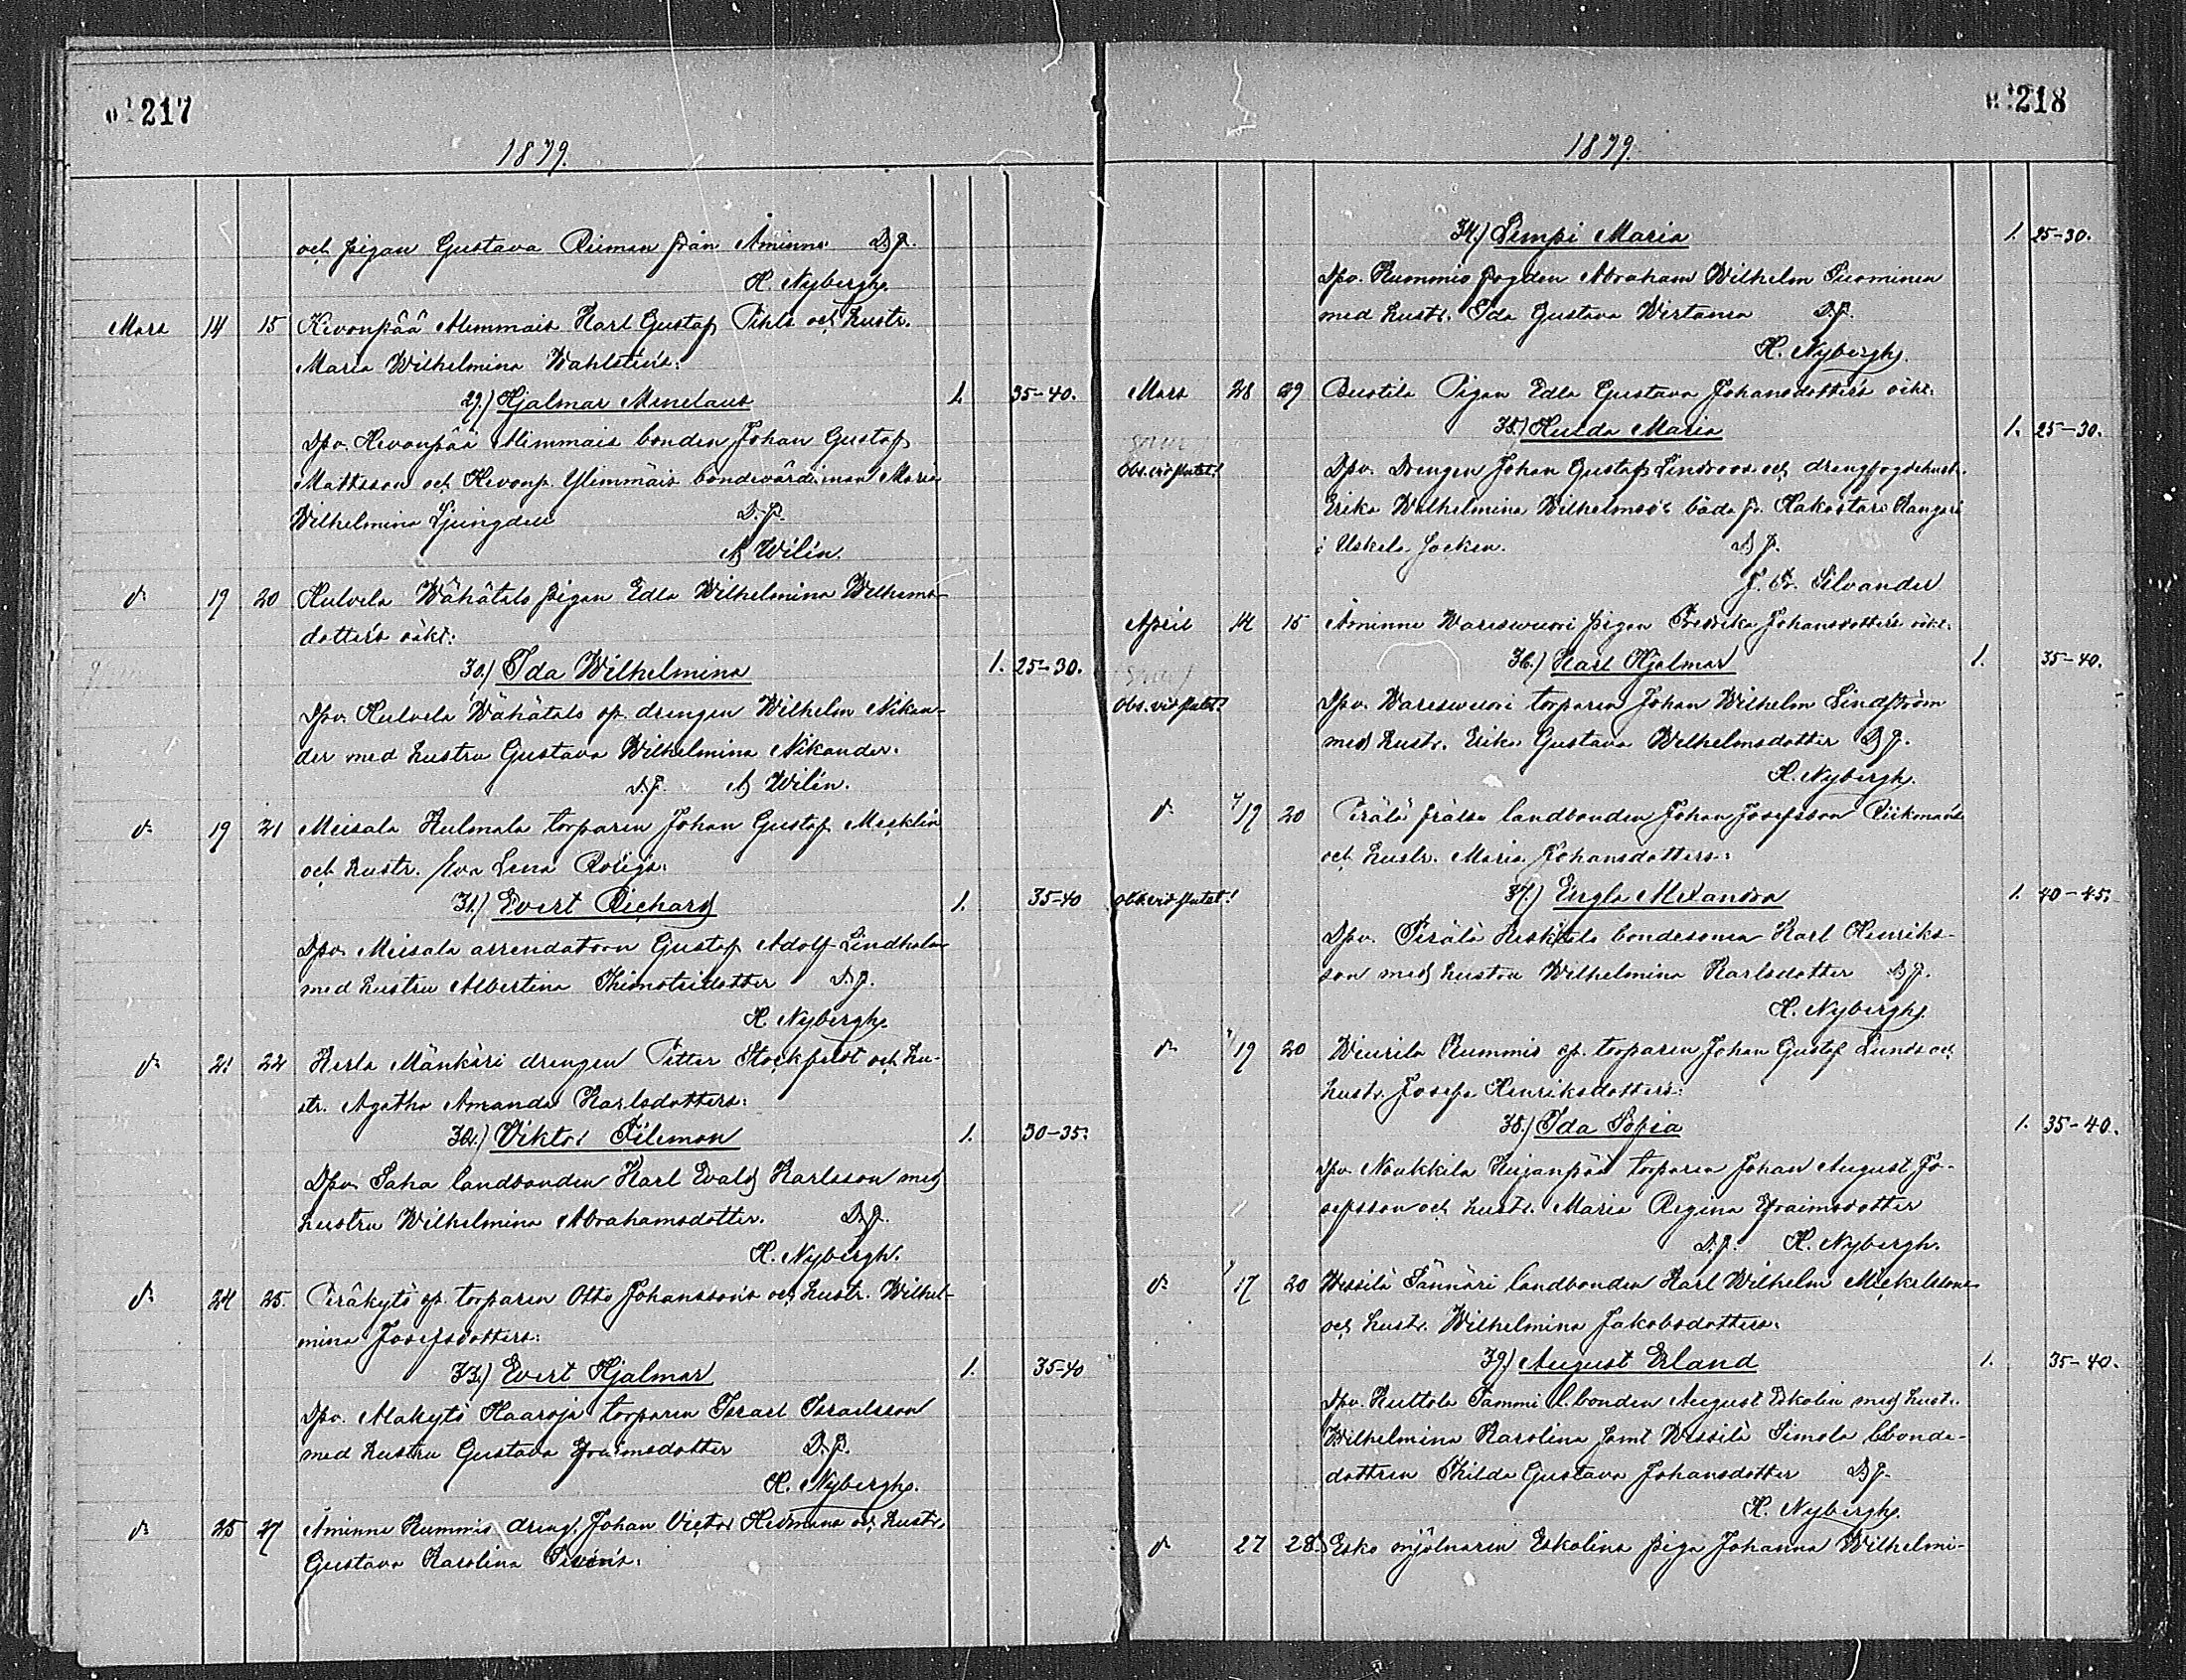 217
1879.
och pigan Gustava Riiman från Åminne D. J.
H. Nybergh.
Mars 14 15 Hevonpää Alimmais Karl Gustaf Pihls och hustr.
Maria Wilhelmina Wahlsténs:
29.) Hjalmar Menelaus 1. 35-40.
Dpv. Hevonpää Alimmais bonden Johan Gustaf
Mattsson och Hevonp. Ylimmäis bondevärdinnan Maria
Wilhelmina Ljungdell D. J.
A Wilén.
d:o 19 20 Hulvela Wähätalo pigan Edla Wilhelmina Wilhelms-
dotters oäkt:
30.) Ida Wilhelmina 1. 25-30.
Dpv. Hulvela Wähätalo sp. drengen Wilhelm Nikan-
der med hustru Gustava Wilhelmina Nikander.
D. J. A Wilén.
d:o 19 21 Meisala Kulmala torparen Johan Gustaf Mecklin
och hustr. Eva Lena Roligs:
31.) Evert Richard 1. 35-40
Dpv. Meisala arrendatorn Gustaf Adolf Lindholm
med hustru Albertina Thimoteidotter D. J.
H. Nybergh.
d:o 21 22 Kerla Mänkäri drengen Petter Stockfeldt och hu-
str. Agatha Amanda Karlsdotters:
32.) Viktor Filemon 1. 30-35.
Dpv. Saha landbonden Karl Evald Karlsson med
hustru Wilhelmina Abrahamsdotter. D. J.
H. Nybergh.
d:o 24 25. Peräkytö sp. torparen Otto Johanssons och hustr. Wilhel-
mina Josefsdotters:
33.) Evert Hjalmar 1. 35-40
Dpv. Makytö Haaroja torparen Israel Israelsson
med hustru Gustava Efraimsdotter D. J.
H. Nybergh.
d:o 25 27 Åminne Rummis dreng. Johan Victor Hedmans och hustr.
Gustava Karolina
218
1879.
34.) Lempi Maria 1. 25-30.
Dpv. Rummis fogden Abraham Wilhelm Tuominen
med hustr. Ida Gustava Wirtanen D. J.
H. Nybergh.
Mars 28 29 Bustila Pigan Edla Gustava Johansdotters oäkt.
35.) Hulda Maria 1. 25-30.
Obs. vid slutet! Dpv. Drengen Johan Gustaf Lindroos och drengfogdehust.
Erika Wilhelmina båda fr. Hakostaro Kangari
i Uskela socken. D. J.
F. Fr. Silvander
April 14 15 Åminne Waresvuori pigan Fredrika Johansdotters oäkt.
36.) Karl Hjalmar 1. 35-40.
Obs. vid slutet! Dpv. Waresvuori torparen Johan Wilhelm Lindström
med hustr. Erika Gustava Wilhelmsdotter D. J.
H. Nybergh.
d:o 19 20 Perälä frälse landbonden Johan Josefsson Riikmans
och hustr. Maria Johansdotters:
Obs. vid slutet! 37.) Engla Alexandra 1. 40-45.
Dpv. Perälä Keskitalo bondesonen Karl Henriks-
son med hustru Wilhelmina Karlsdotter D. J.
H. Nybergh.
d:o 19 20 Wiurila Rummis sp. torparen Johan Gustaf Lunds och
hustr. Josefa Henriksdotters:
38.) Ida Sofia 1. 35-40.
Dpv. Noukkila Kujanpää torparen Johan August Jo-
sefsson och hustr. Maria Regina Efraimsdotter
D. J. H. Nybergh.
d:o 17 20 Wessilä Sännäri landbonden Karl Wilhelm Mickelssons
och hustr. Wilhelmina Jakobsdotters:
39.) August Erland 1. 35-40.
Dpv. Kuttola Tammi l. bonden August Eskolin med hust.
Wilhelmina Karolina samt Wessilä Simola lbonde-
dottren Thilda Gustava Johansdotter D J.
H. Nybergh.
d:o 27 28. Esko mjölnaren Eskolins piga Johanna Wilhelmi-